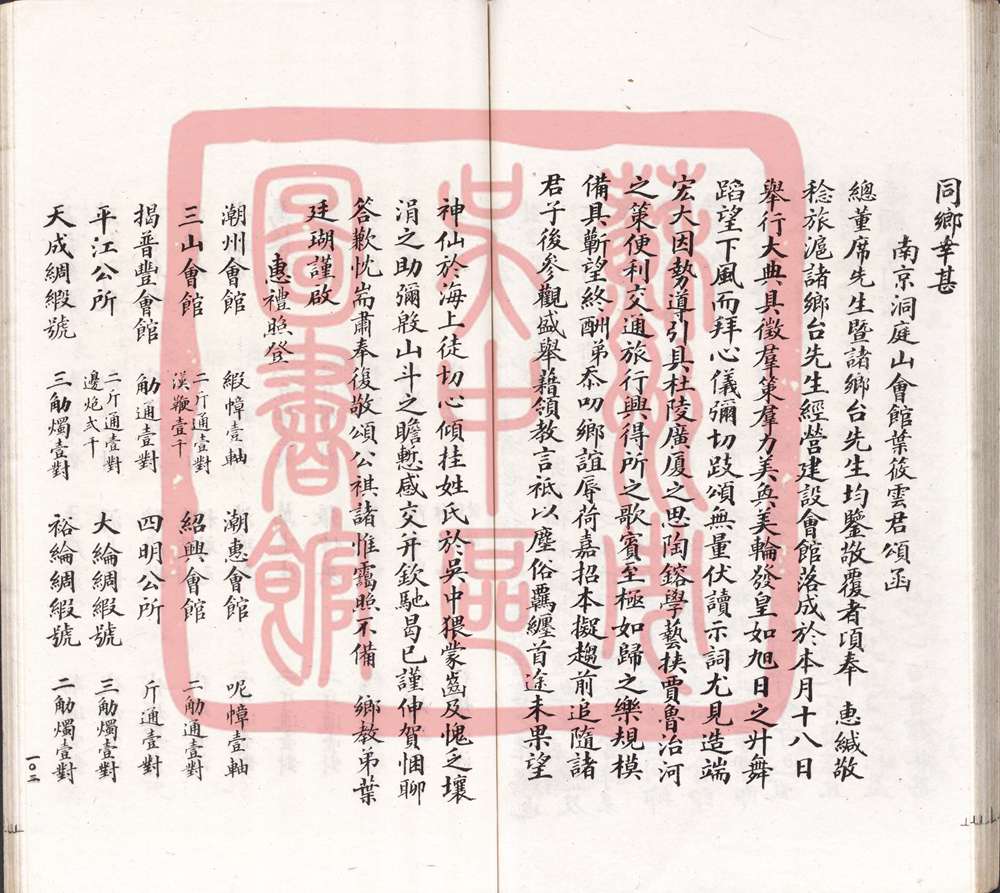 同鄉幸甚
南京洞庭山會館葉筱雲君頌函
總董席先生暨諸鄉台先生均鑒敬覆者項奉　惠緘敬
稔旅滬諸鄉台先生經營建設會館落成於本月十八日
舉行大典具徵羣策羣力美奐美輪發皇如旭日之升舞
蹈望下風而拜心儀彌切跂頌無量伏讀示詞尤見造端
宏大因勢導引具杜陵廣厦之思陶鎔學藝挾賈魯治河
之策便利交通旅行興得所之歌賓至極如歸之樂規模
備具蘄望終酬弟忝叨鄉誼辱荷嘉招本擬趨前追隨諸
君子後參觀盛舉藉領教言祇以塵俗羈纏首途未果望
神仙於海上徒切心傾挂姓氏於吳中猥蒙齒及愧乏壤
涓之助彌殷山斗之瞻慙感交并欽馳曷已謹伸賀悃聊
答歉忱耑肅奉復敬頌公祺諸惟靄照不備　鄉教弟葉
廷瑚謹啟
惠禮照登
潮州會館　緞幛壹軸　潮惠會館　呢幛壹軸
三山會館　二斤通壹對　漢鞭壹千　紹興會館　二觔通壹對
揭普豐會館　觔通壹對　四明公所　斤通壹對
平江公所　二斤通壹對　邊炮弍千　大綸綢緞號　三觔燭壹對
天成綢緞號　三觔燭壹對　裕綸綢緞號　二觔燭壹對
一〇二
蘇州市吳中區圖書館